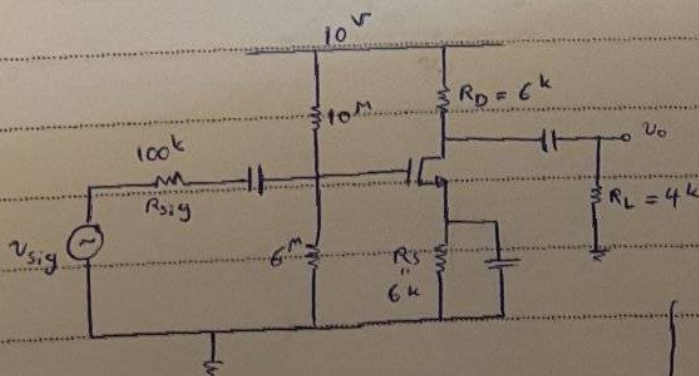 10 V
10 M
R_D = 6 k
100 k
R_sig
v_o
R_L = 4 k
v_sig
6 M
R_S
"
6 k